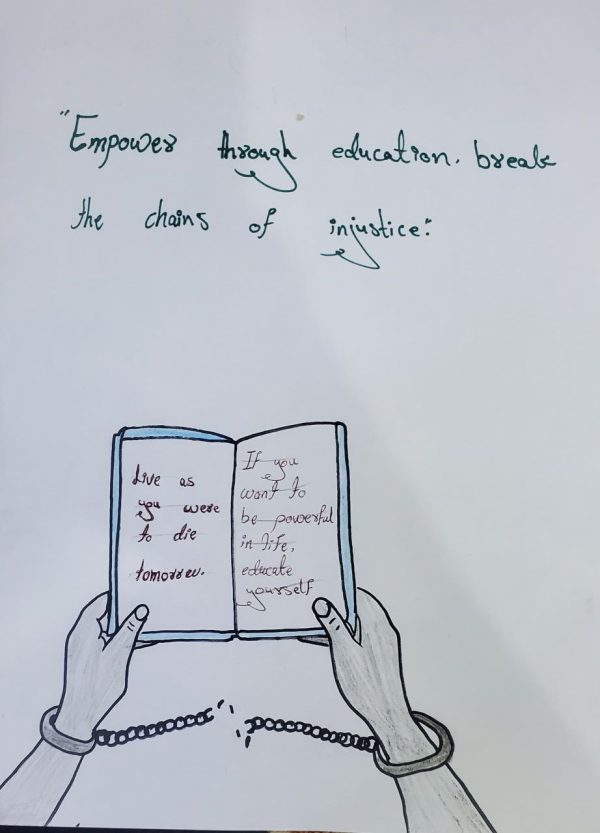 "Empower through education. break
the chains of injustice."
Live as
you were
to die
tomorrow.
If you
want to
be powerful
in life,
educate
yourself